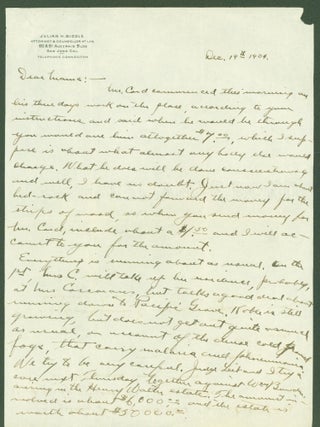 JULIAN H. BIDDLE
ATTORNEY & COUNSELLOR AT LAW
SAN JOSE CAL.
TELEPHONE CONNECTION
Dec. 19th 1904.
Dear Mama:—
Mr. Cord commenced this morning on
his three days work on the place, according to your
instructions and said when he would be through
you would owe him altogether $7.00, which I sup-
pose is about what almost any body else would
charge. What he does will be done conscientiously
and well, I have no doubt. Just now I am about
bed-rock and can not forward the money for the
strips of wood, so when you send money for
Mr. Cord, include about a $1.00 and I will ac-
count to you for the amount.
Everything is running about as usual, on the
1st Mrs C. will take up her residence, probably,
at Mrs Corcoran, but talks a good deal about
running down to Pacific Grove. Rob is still
growing but does not get out quite as much
as usual, on account of the dense cold
fogs, that carry malaria and pneumonia.
We try to be very careful. Judge and I try a
case next Thursday together against
in the Henry Walter estate. The amount in-
volved is about $6,000.00 and the estate is
worth about $50000.00.